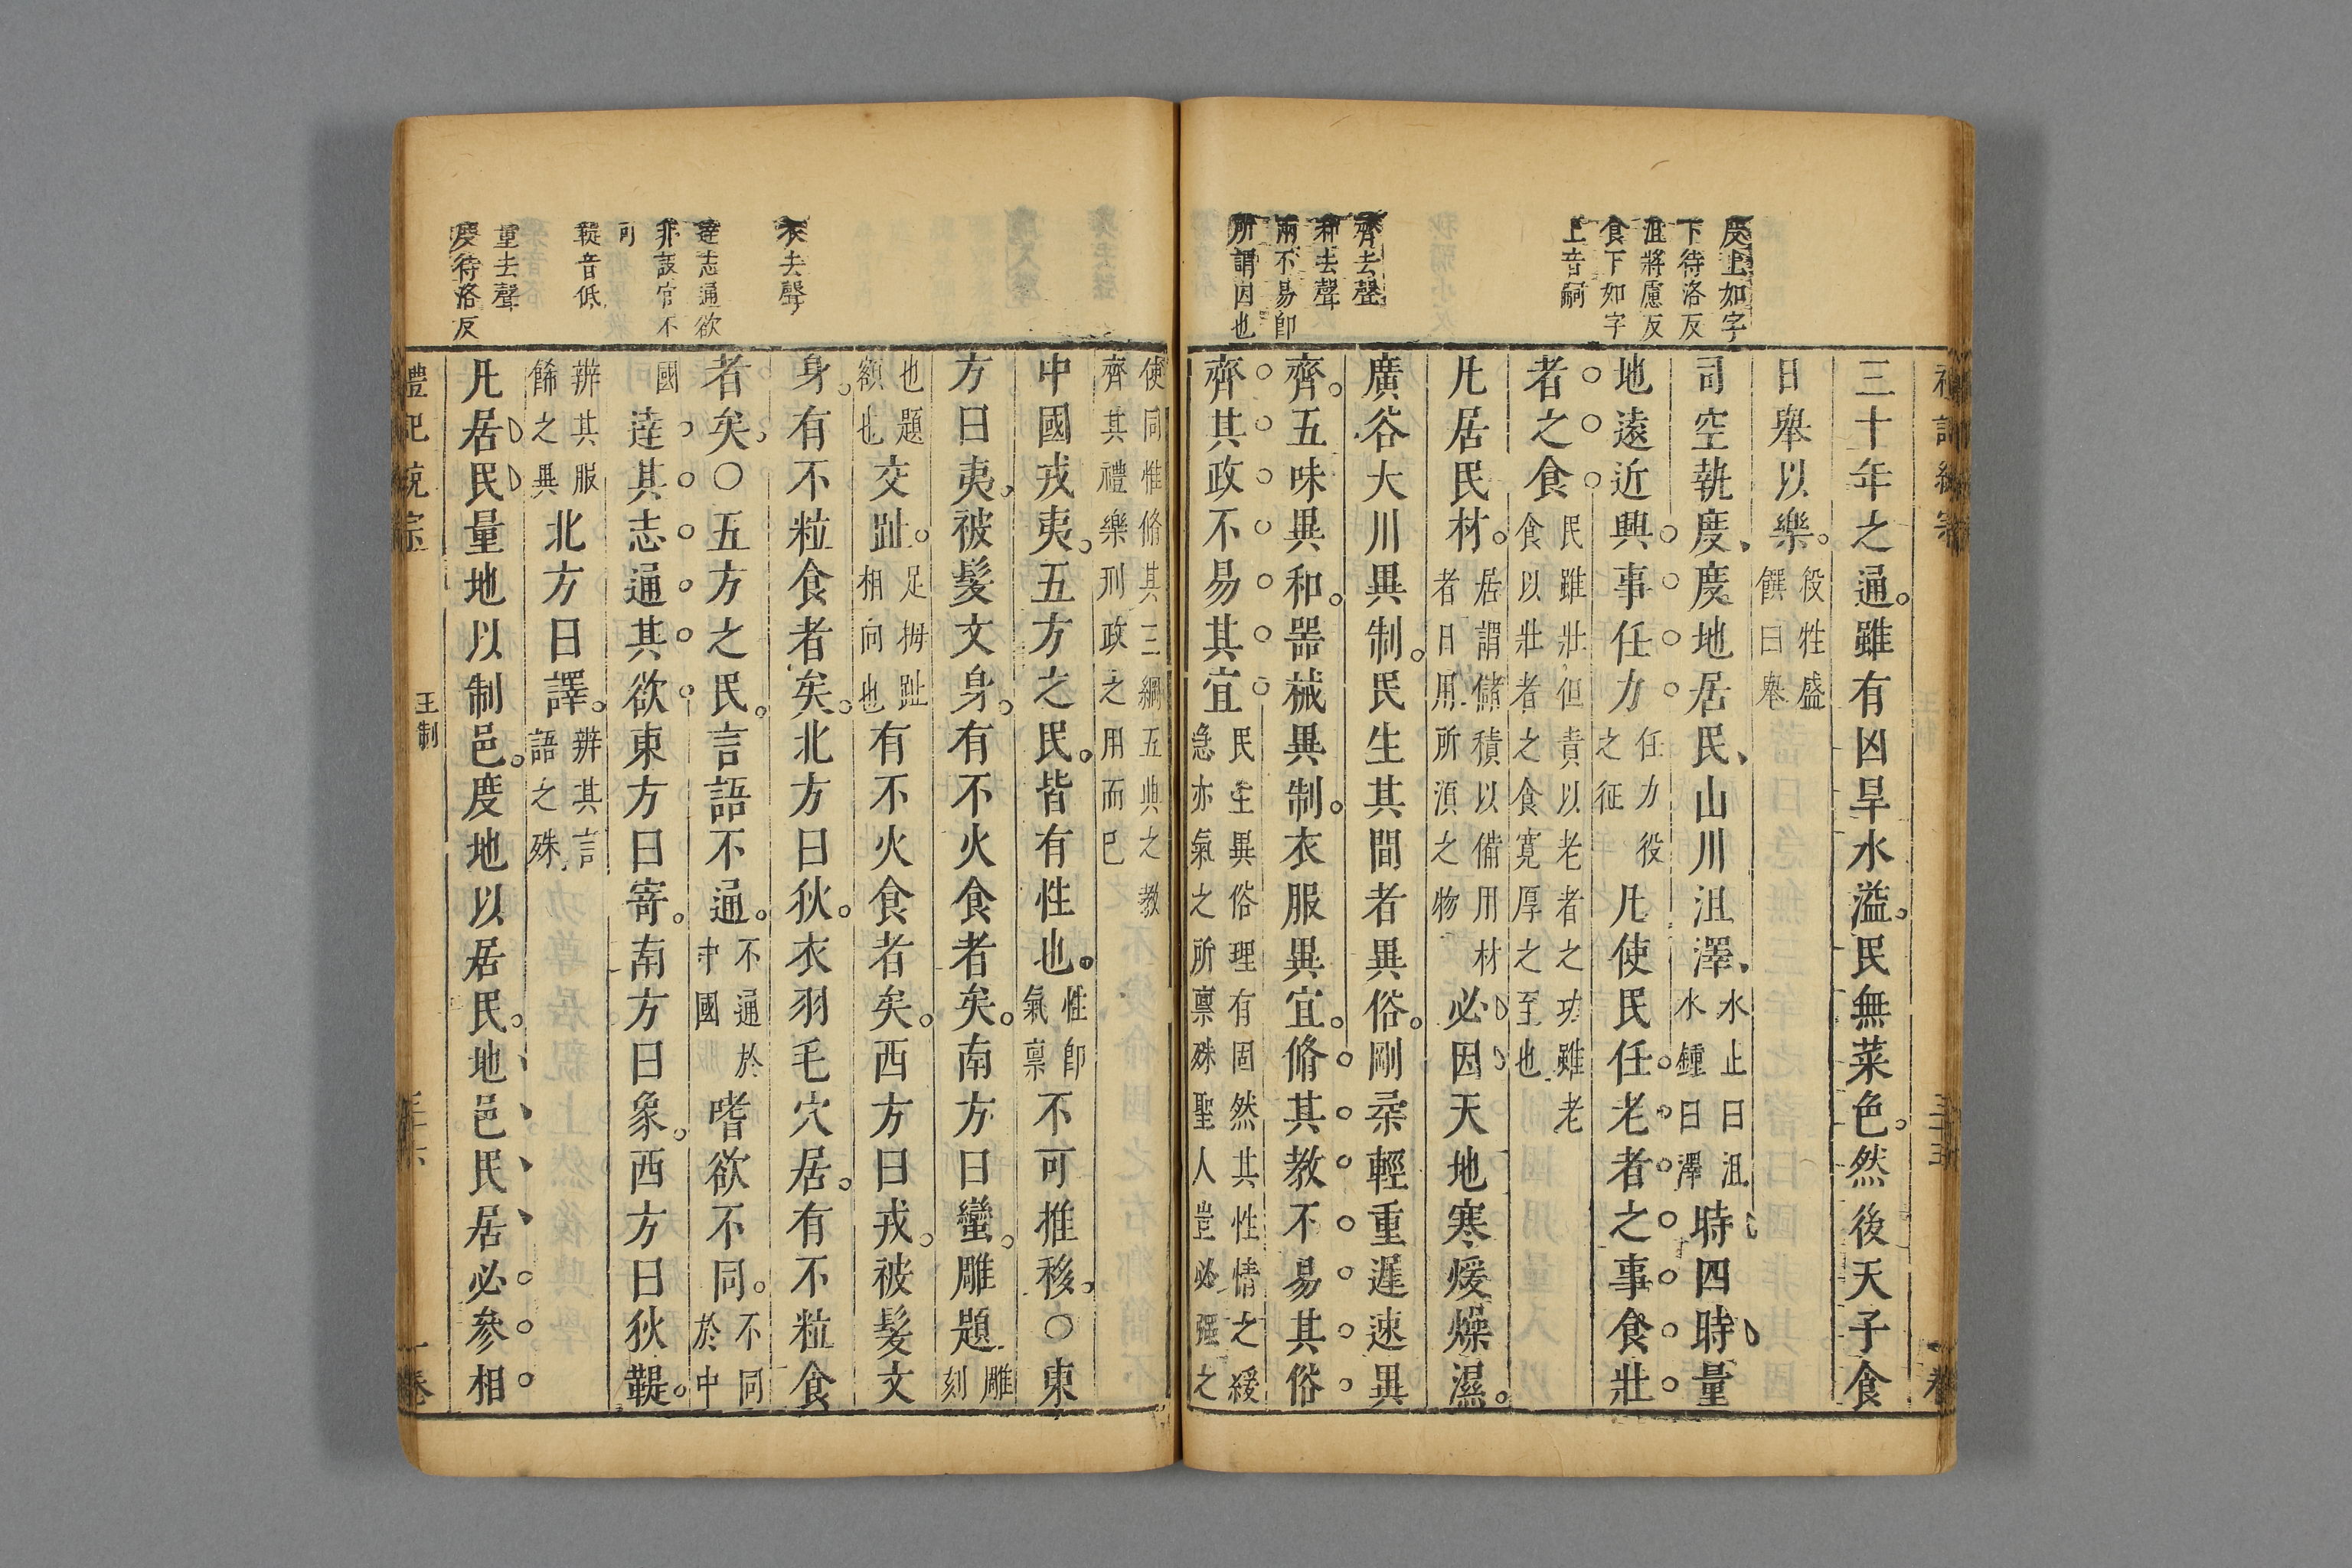 度上如字
下待洛反
沮將慮反
食下如字
上音嗣
齊去聲
和去聲
兩不易卽
所謂因也
三十年之通雖有凶旱水溢民無菜色然後天子食
日舉以樂殺牲盛饌曰舉
司空執度度地居民山川沮澤水止曰沮水鍾曰澤時四時量
地遠近興事任力任力役之征凡使民任老者之事食壯
者之食民雖壯但責以老者之功雖老食以壯者之食寬厚之至也
凡居民材居謂儲積以備用材者日用所須之物必因天地寒煖燥濕
廣谷大川異制民生其間者異俗剛柔輕重遲速異
齊五味異和器械異制衣服異宜脩其教不易其俗
齊其政不易其宜民生異俗理有固然其性情之緩急亦氣之所稟殊聖人豈必强之
三十五
衣去聲
達志通欲
非設官不
可
鞮音低
量去聲
度待洛反
使同惟脩其三綱五典之教齊其禮樂刑政之用而已
中國戎夷五方之民皆有性也性卽氣稟不可推移○東
方曰夷被髮文身有不火食者矣南方曰蠻雕題雕刻
也題額也交趾足拇趾相向也有不火食者矣西方曰戎被髮文
身有不粒食者矣北方曰狄衣羽毛穴居有不粒食
者矣○五方之民言語不通不通於中國嗜欲不同不同於中
國達其志通其欲東方曰寄南方曰象西方曰狄鞮
辨其服餙之異北方曰譯辨其言語之殊
凡居民量地以制邑度地以居民地邑民居必參相
禮記統宗
王制
一卷